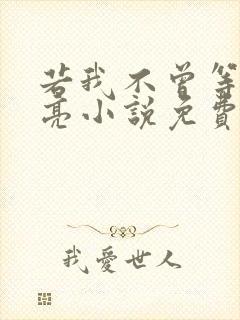 若我不曾等
亮小說免費
我愛世人